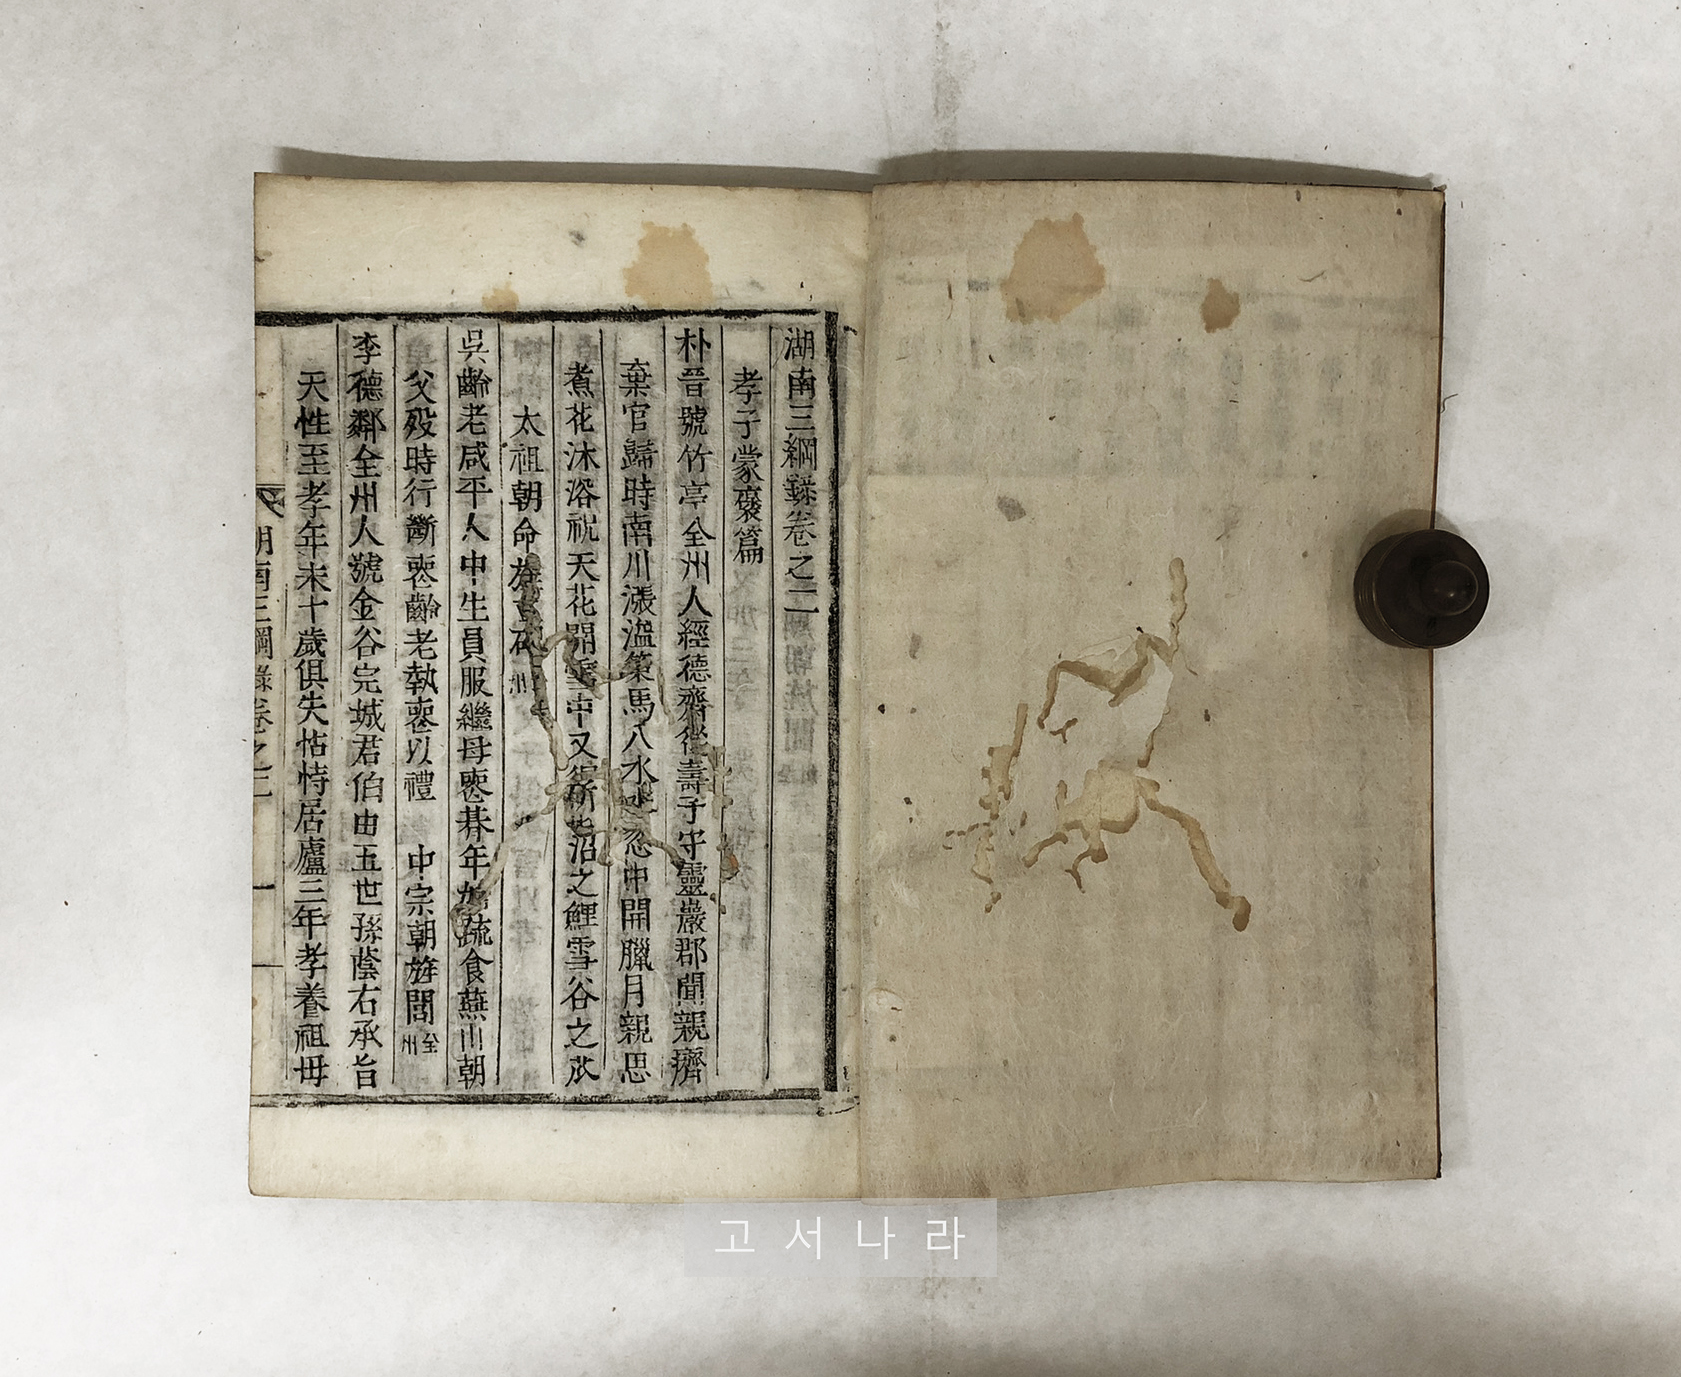 湖南三綱錄卷之二
孝子蒙褒篇
朴晉號竹亭全州人經德齋從壽子守靈巖郡聞親癠
棄官歸時南川漲溢策馬入水水忽中開臘月親思
煮花沐浴祝天花開雪中又沼之鯉雪谷之苽
太祖朝命旌
吳齡老咸平人中生員服繼母喪朞年疏食蕪川朝
父歿時行斷喪齡老執喪以禮 中宗朝旌閭 全州
李德鄰全州人號金谷完城君伯由五世孫蔭右承旨
天性至孝年未十歲俱失怙恃居廬三年孝養祖母
湖南三綱錄卷之二
고서나라